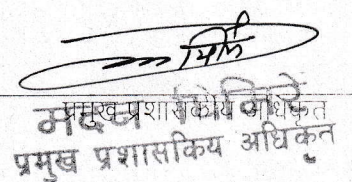 प्रमुख प्रशासकीय अधिकृत
मदन घिमिरे
प्रमुख प्रशासकिय अधिकृत